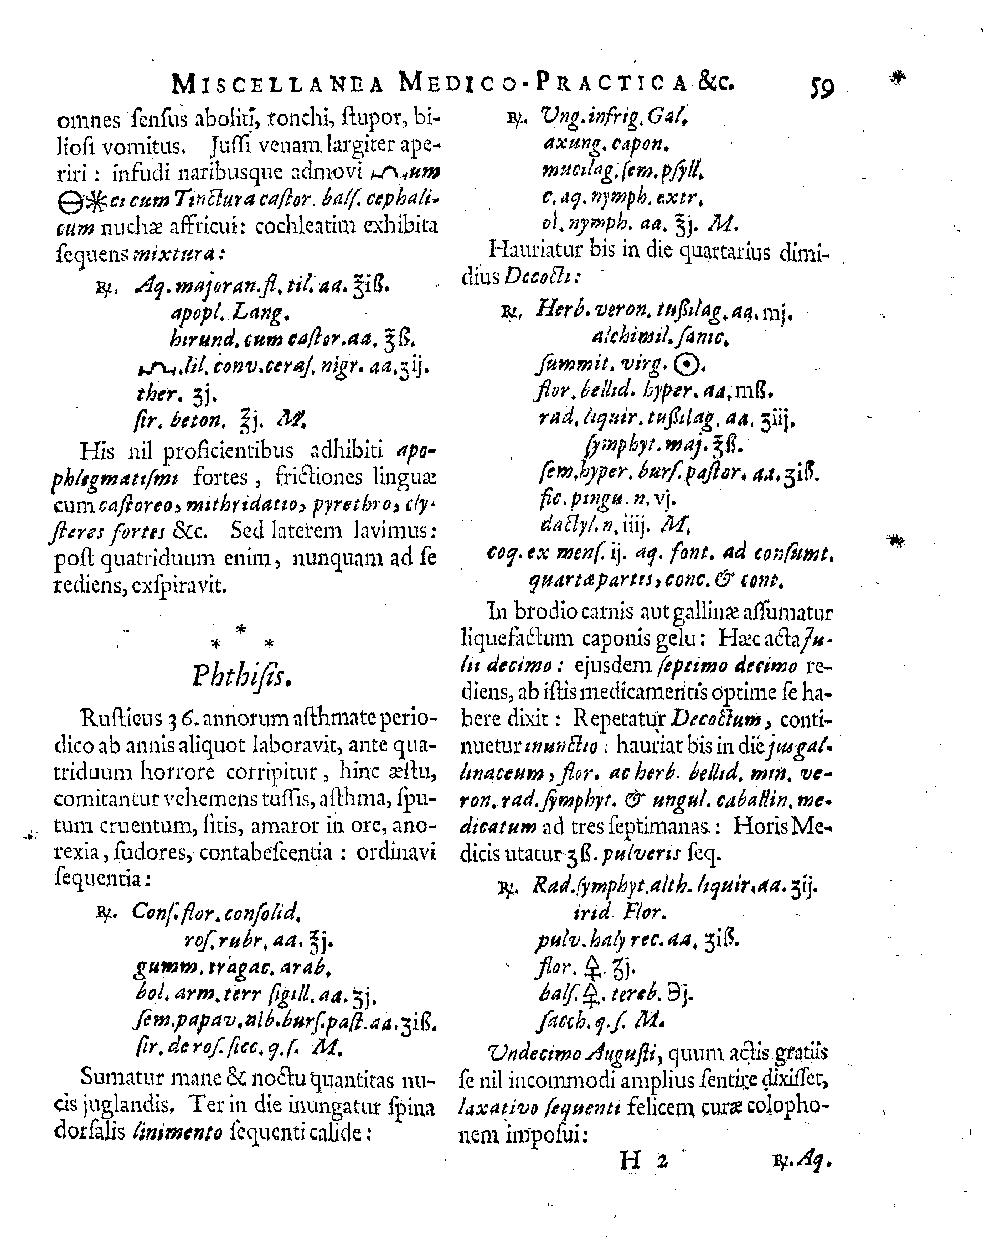 MISCELLANEA MEDICO-PRACTICA &c. 59
omnes ſenſus aboliti, ronchi, ſtupor, bi-
lioſi vomitus. Juſſi venam largiter ape-
riri: infudi naribusque admovi um
🜔✱ci cum Tinctura caſtor. balſ. cephali-
cum nuchæ affricui: cochleatim exhibita
ſequens mixtura:
℞. Aq. majoran. fl. til. aa. ℥iß.
apopl. Lang.
hirund. cum caſtor. aa. ℥ß.
lil. conv. ceraſ. nigr. aa. ʒij.
ther. ʒj.
ſir. beton. ℥j. M.
His nil proficientibus adhibiti apo-
phlegmatiſmi fortes, frictiones linguæ
cum caſtoreo, mithridatio, pyrethro, cly-
ſteres fortes &c. Sed laterem lavimus:
poſt quatriduum enim, nunquam ad ſe
rediens, exſpiravit.
* * *
Phthiſis.
Ruſticus 36. annorum aſthmate perio-
dico ab annis aliquot laboravit, ante qua-
triduum horrore corripitur, hinc æſtu,
comitantur vehemens tuſſis, aſthma, ſpu-
tum cruentum, ſitis, amaror in ore, ano-
rexia, ſudores, contabeſcentia: ordinavi
ſequentia:
℞. Conſ. flor. conſolid.
roſ. rubr. aa. ℥j.
gumm. tragac. arab.
bol. arm. terr ſigill. aa. ʒj.
ſem. papav. alb. burſ. paſt. aa. ʒiß.
ſir. de roſ. ſicc. q. ſ. M.
Sumatur mane & noctu quantitas nu-
cis juglandis. Ter in die inungatur ſpina
dorſalis linimento ſequenti calide:
℞. Ung. infrig. Gal.
axung. capon.
mucilag. ſem. pſyll.
c. aq. nymph. extr.
ol. nymph. aa. ℥j. M.
Hauriatur bis in die quartarius dimi-
dius Decocti:
℞. Herb. veron. tußilag. aa. mj.
alchimil. ſanic.
ſummit. virg. ☉.
flor. bellid. hyper. aa. mß.
rad. liquir. tußilag. aa. ʒiij.
ſymphyt. maj. ℥ß.
ſem. hyper. burſ. paſtor. aa. ʒiß.
fic. pingu. n. vj.
dactyl. n. iiij. M.
coq. ex menſ. ij. aq. font. ad conſumt.
quartæ partis, conc. & cont.
In brodio carnis aut gallinæ aſſumatur
liquefactum caponis gelu: Hæc acta Ju-
lii decimo: ejusdem ſeptimo decimo re-
diens, ab iſtis medicamentis optime ſe ha-
bere dixit: Repetatur Decoctum, conti-
nuetur inunctio: hauriat bis in die jusgal-
linaceum, flor. ac herb. bellid. min. ve-
ron. rad. ſymphyt. & ungul. caballin. me-
dicatum ad tres ſeptimanas: Horis Me-
dicis utatur ʒß. pulveris ſeq.
℞. Rad. ſymphyt. alth. liquir. aa. ʒij.
irid. Flor.
pulv. haly rec. aa. ʒiß.
flor. 🜍. ʒj.
balſ. 🜍. tereb. ℈j.
ſacch. q. ſ. M.
Undecimo Auguſti, quum actis gratiis
ſe nil incommodi amplius ſentire dixiſſet,
laxativo ſequenti felicem curæ colopho-
nem impoſui:
H 2 ℞. Aq.